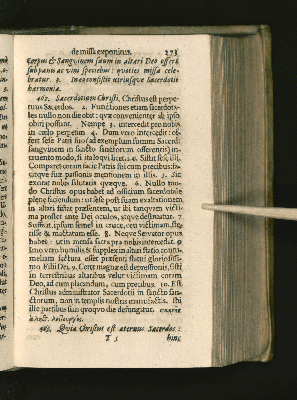 de missa exponitur. 273
Corpus & Sanguinem suum in altari Deo offert,
sub panis ac vini speciebus: quoties missa cele-
bratur. 3. Inconsistit utriusque Sacerdotii
harmonia.
467. Sacerdotium Christi. Christus est perpe-
tuus Sacerdos. 2. Functiones etiam sacerdota-
les nullo non die obit: quæ convenienter ab ipso
obiri possunt. Nempe 3. intercedit pro nobis
in cœlo perpetim 4. Dum vero intercedit: of-
fert sese Patri suo (ad exemplum summi Sacerd.
sanguinem in sancto sanctorum offerentis) in-
cruento modo, si ita loqui licet. i. e. Sistit sese illi.
Comparet coram facie Patris sui cum precibus in-
itque sui passionis mentionem in illis. 5. Sic
exorat nobis salutaria quæque. 6. Nullo mo-
do Christus opus habet ad officium sacerdotale
plene faciendum: ut sese post suam exaltationem
in altari sistat præsentem, ut ibi tanquam victi-
ma prostet ante Dei oculos, atque destituatur. 7
Sufficit, ipsum semel in cruce, ceu victimam, ste-
tisse & mactatum esse. 8. Neque Servator opus
habet: ut in mensa sacra pro nobis intercedat.
Imo vero humilis & supplex in altari statio contu-
meliam factura esset præsenti statui gloriosissi-
mo Filii Dei. 9. Certe magna est depressionis, sisti
in terrestribus altaribus velut victimam coram
Deo, ad eum placandum, cum precibus. 10. Est
Christus administrator Sacerdotii in sancto san-
ctorum, non in templis nostris manufactis. Ibi
ille partibus sui quoque die defungitur.
468. Quia Christus est æternus Sacerdos:
T 5 hinc